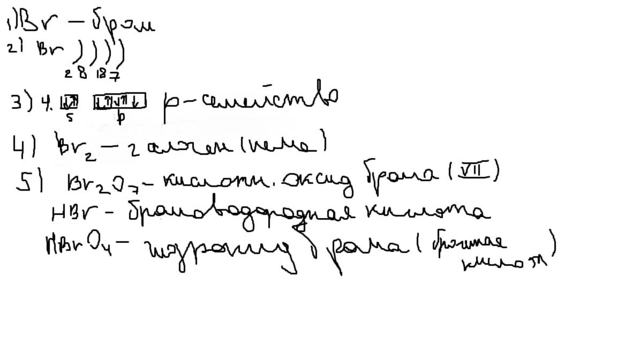 1) Br – бром
2) Br ) ) ) )
2 8 18 7
3) 4. ↓↑ ↓↑↓↑↓ p-семейство
s p
4) Br2 – галоген (нема)
5) Br2O7 – кислотн. оксид брома (VII)
HBr – бромоводородная кислота
HBrO4 – гидроксид брома (бромная
кислота)